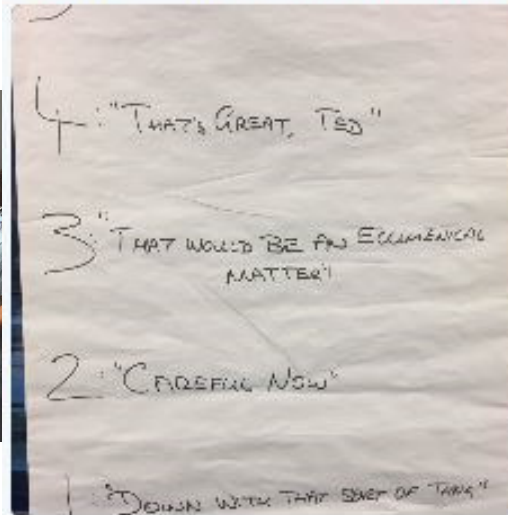 5
4: "THAT'S GREAT, TED"
3: "THAT WOULD BE AN ECUMENICAL
MATTER"
2: "CAREFUL NOW"
1 "DOWN WITH THAT SORT OF THING"